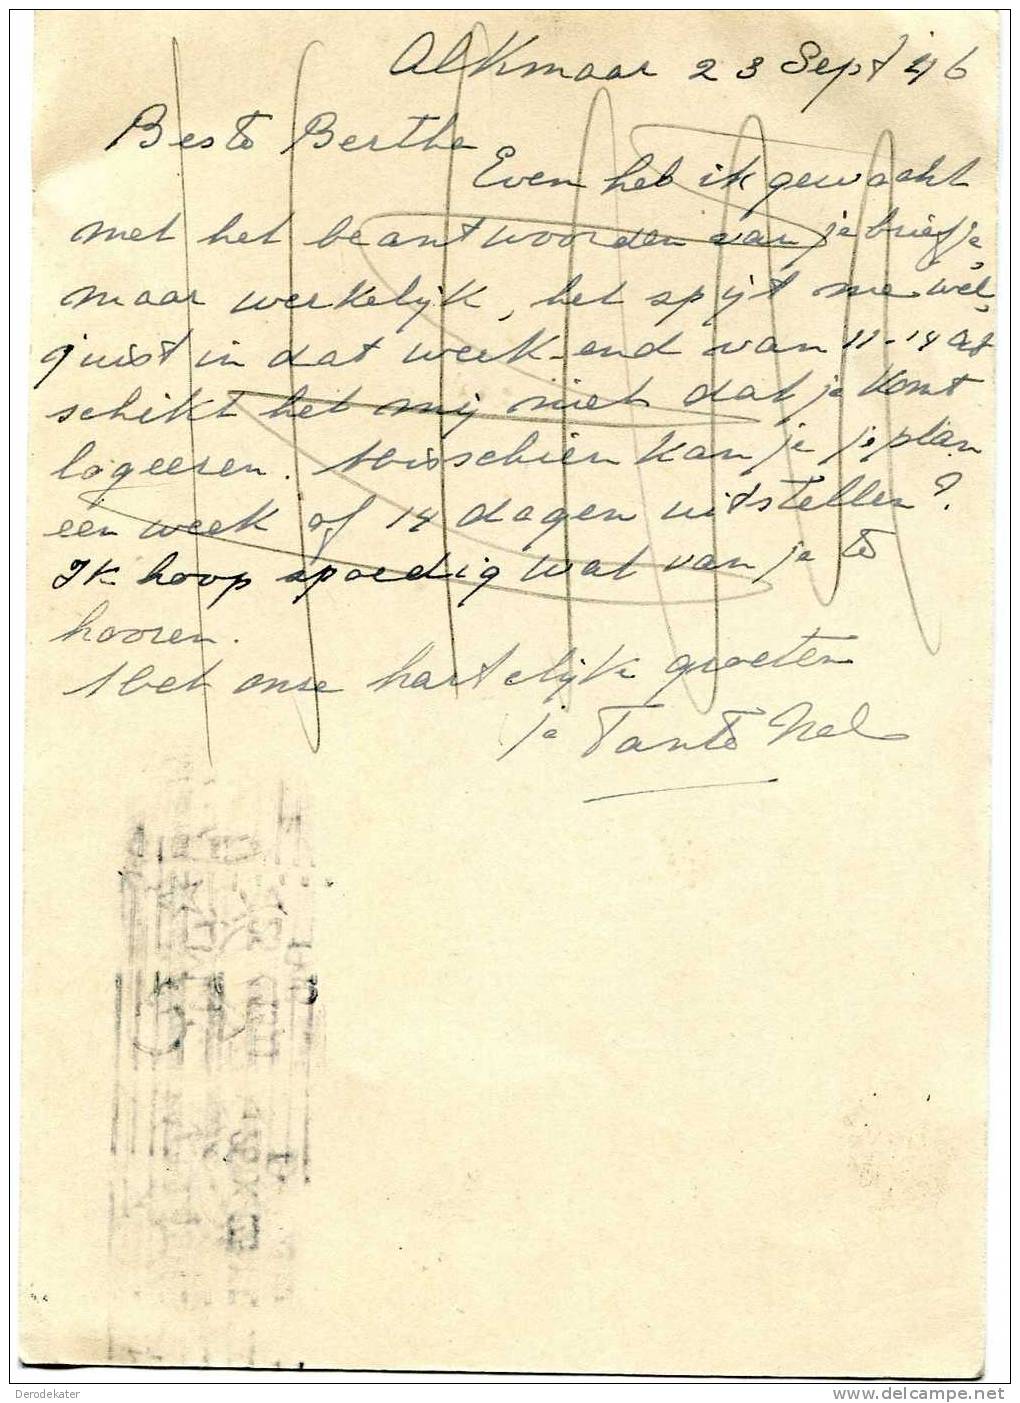 Alkmaar 23 Sept '46
Beste Bertha
Even heb ik gewacht
met het beantwoorden van je briefje,
maar werkelijk, het spijt me wel,
juist in dat week-end van 11-14
schikt het mij niet dat je komt
logeeren. Misschien kan je je plan
één week of 14 dagen uitstellen?
Ik hoop spoedig wat van je te
hooren.
Met onze hartelijke groeten
je Tante Nel
Derodekater
delcampe.net